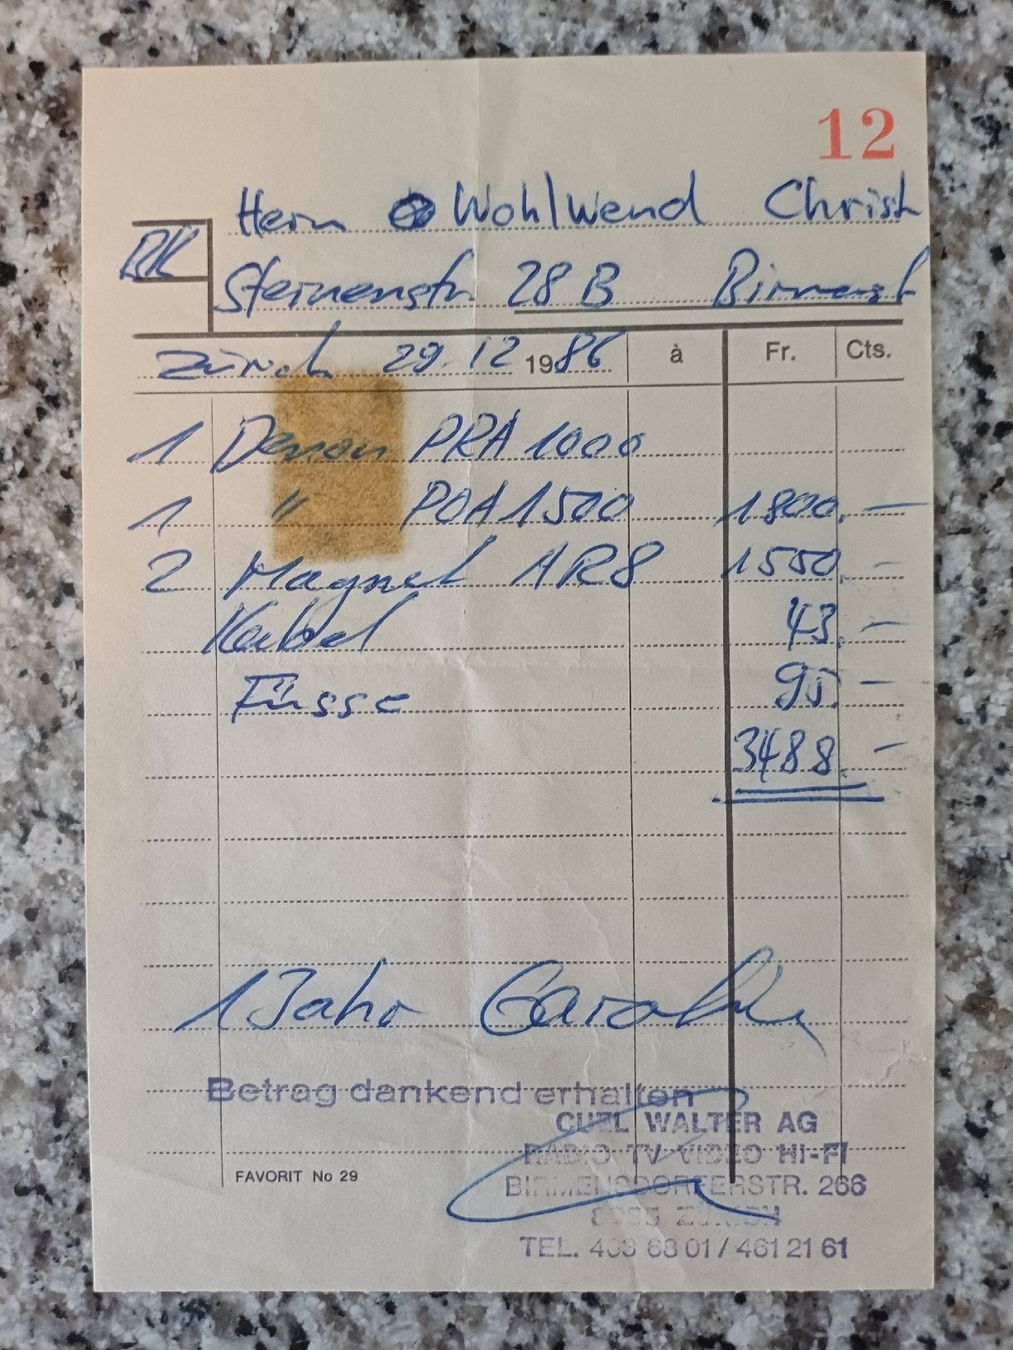 12
Herrn Wohlwend Christ
BK
Sternenstr. 28 B
Zürich 29.12 1986 à Fr. Cts.
1 Denon PRA 1000
1 " POA 1500 1800.—
2 Magnat AR8 1550.—
Kabel 43.—
Füsse 95.—
3488.—
1 Jahr Garantie
Betrag dankend erhalten
WALTER AG
RADIO TV VIDEO HI-FI
FAVORIT No 29
BIRMENSDORFERSTR. 266
ZÜRICH
TEL. 463 68 01 / 461 21 61